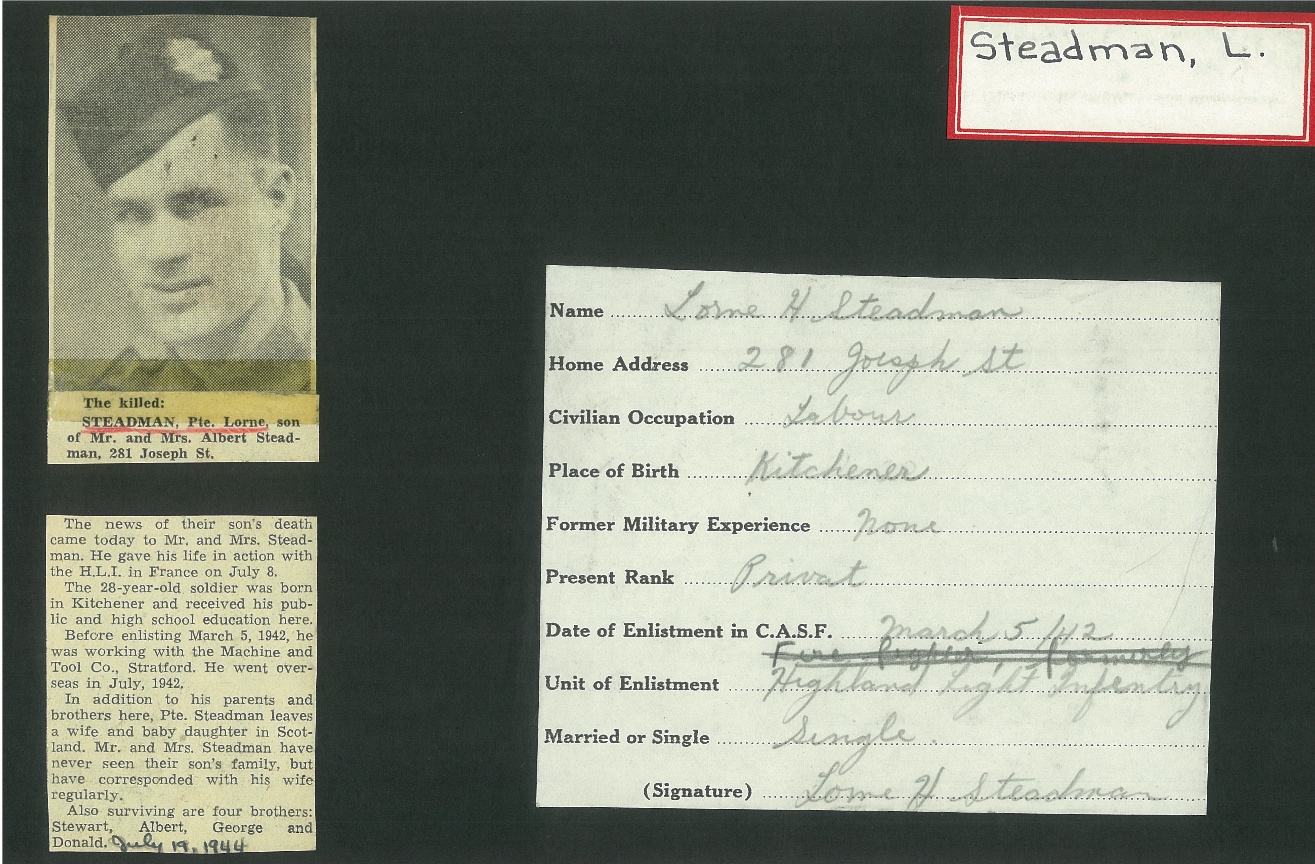 Steadman, L.
The killed:
STEADMAN, Pte. Lorne, son
of Mr. and Mrs. Albert Stead-
man, 281 Joseph St.
The news of their son's death
came today to Mr. and Mrs. Stead-
man. He gave his life in action with
the H.L.I. in France on July 8.
The 28-year-old soldier was born
in Kitchener and received his pub-
lic and high school education here.
Before enlisting March 5, 1942, he
was working with the Machine and
Tool Co., Stratford. He went over-
seas in July, 1942.
In addition to his parents and
brothers here, Pte. Steadman leaves
a wife and baby daughter in Scot-
land. Mr. and Mrs. Steadman have
never seen their son's family, but
have corresponded with his wife
regularly.
Also surviving are four brothers:
Stewart, Albert, George and
Donald. July 19, 1944
Name Lorne H Steadman
Home Address 281 Joesph St
Civilian Occupation Labour
Place of Birth Kitchener
Former Military Experience none
Present Rank Privat
Date of Enlistment in C.A.S.F. March 5/42
formerly
Unit of Enlistment Highland Light Infentry
Married or Single Single.
(Signature) Lorne H Steadman